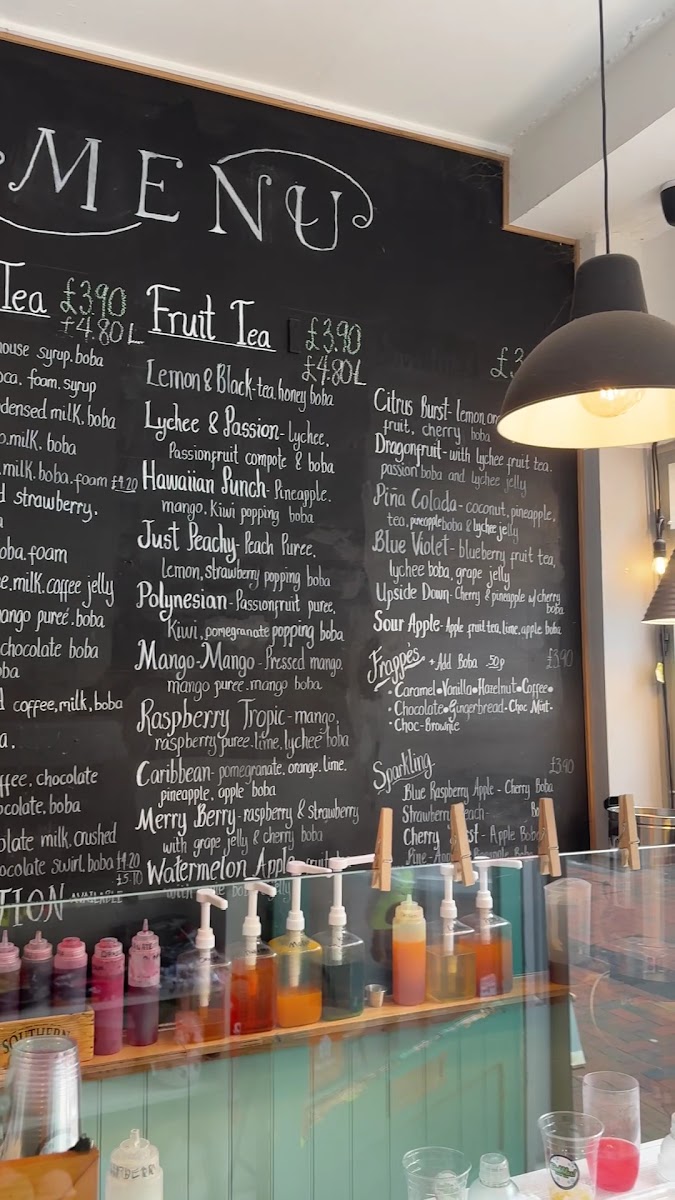 MENU
Tea £3.90
£4.80L
house syrup.boba
foam.syrup
condensed milk.boba
milk. boba
milk.boba.foam £4.20
strawberry.
boba.foam
milk.coffee jelly
mango pureé.boba
chocolate boba
boba
coffee.milk.boba
coffee, chocolate
chocolate, boba
chocolate milk.crushed
chocolate swirl.boba £4.20
£5.10
AVAILABLE
Fruit Tea £3.90
£4.80L
Lemon & Black-tea.honey boba
Lychee & Passion-lychee,
Passionfruit compote & boba
Hawaiian Punch-Pineapple.
mango.Kiwi popping boba
Just Peachy-Peach Puree,
Lemon, strawberry popping boba
Polynesian-Passionfruit puree,
Kiwi, pomegranate popping boba
Mango-Mango-Pressed mango.
mango puree.mango boba
Raspberry Tropic-mango,
raspberry puree.lime, lychee boba
Caribbean-pomegranate, orange.lime.
pineapple, apple boba
Merry Berry-raspberry & strawberry
with grape jelly & cherry boba
Watermelon Apple-
£3
Citrus Burst-lemon,
fruit, cherry boba
Dragonfruit-with lychee fruit tea.
passion boba and lychee jelly
Piña Colada-coconut, pineapple,
tea.pineapple boba & lychee jelly
Blue Violet-blueberry fruit tea,
lychee boba, grape jelly
Upside Down-Cherry & pineapple w/ cherry
boba
Sour Apple-Apple fruit tea, lime, apple boba
Frappés +Add Boba 50p £3.90
•Caramel•Vanilla•Hazelnut•Coffee•
•Chocolate•Gingerbread•Choc Mint•
•Choc-Brownie
Sparkling £3.40
Blue Raspberry Apple - Cherry Boba
Strawberry
Cherry - Apple Boba
SOUTHERN